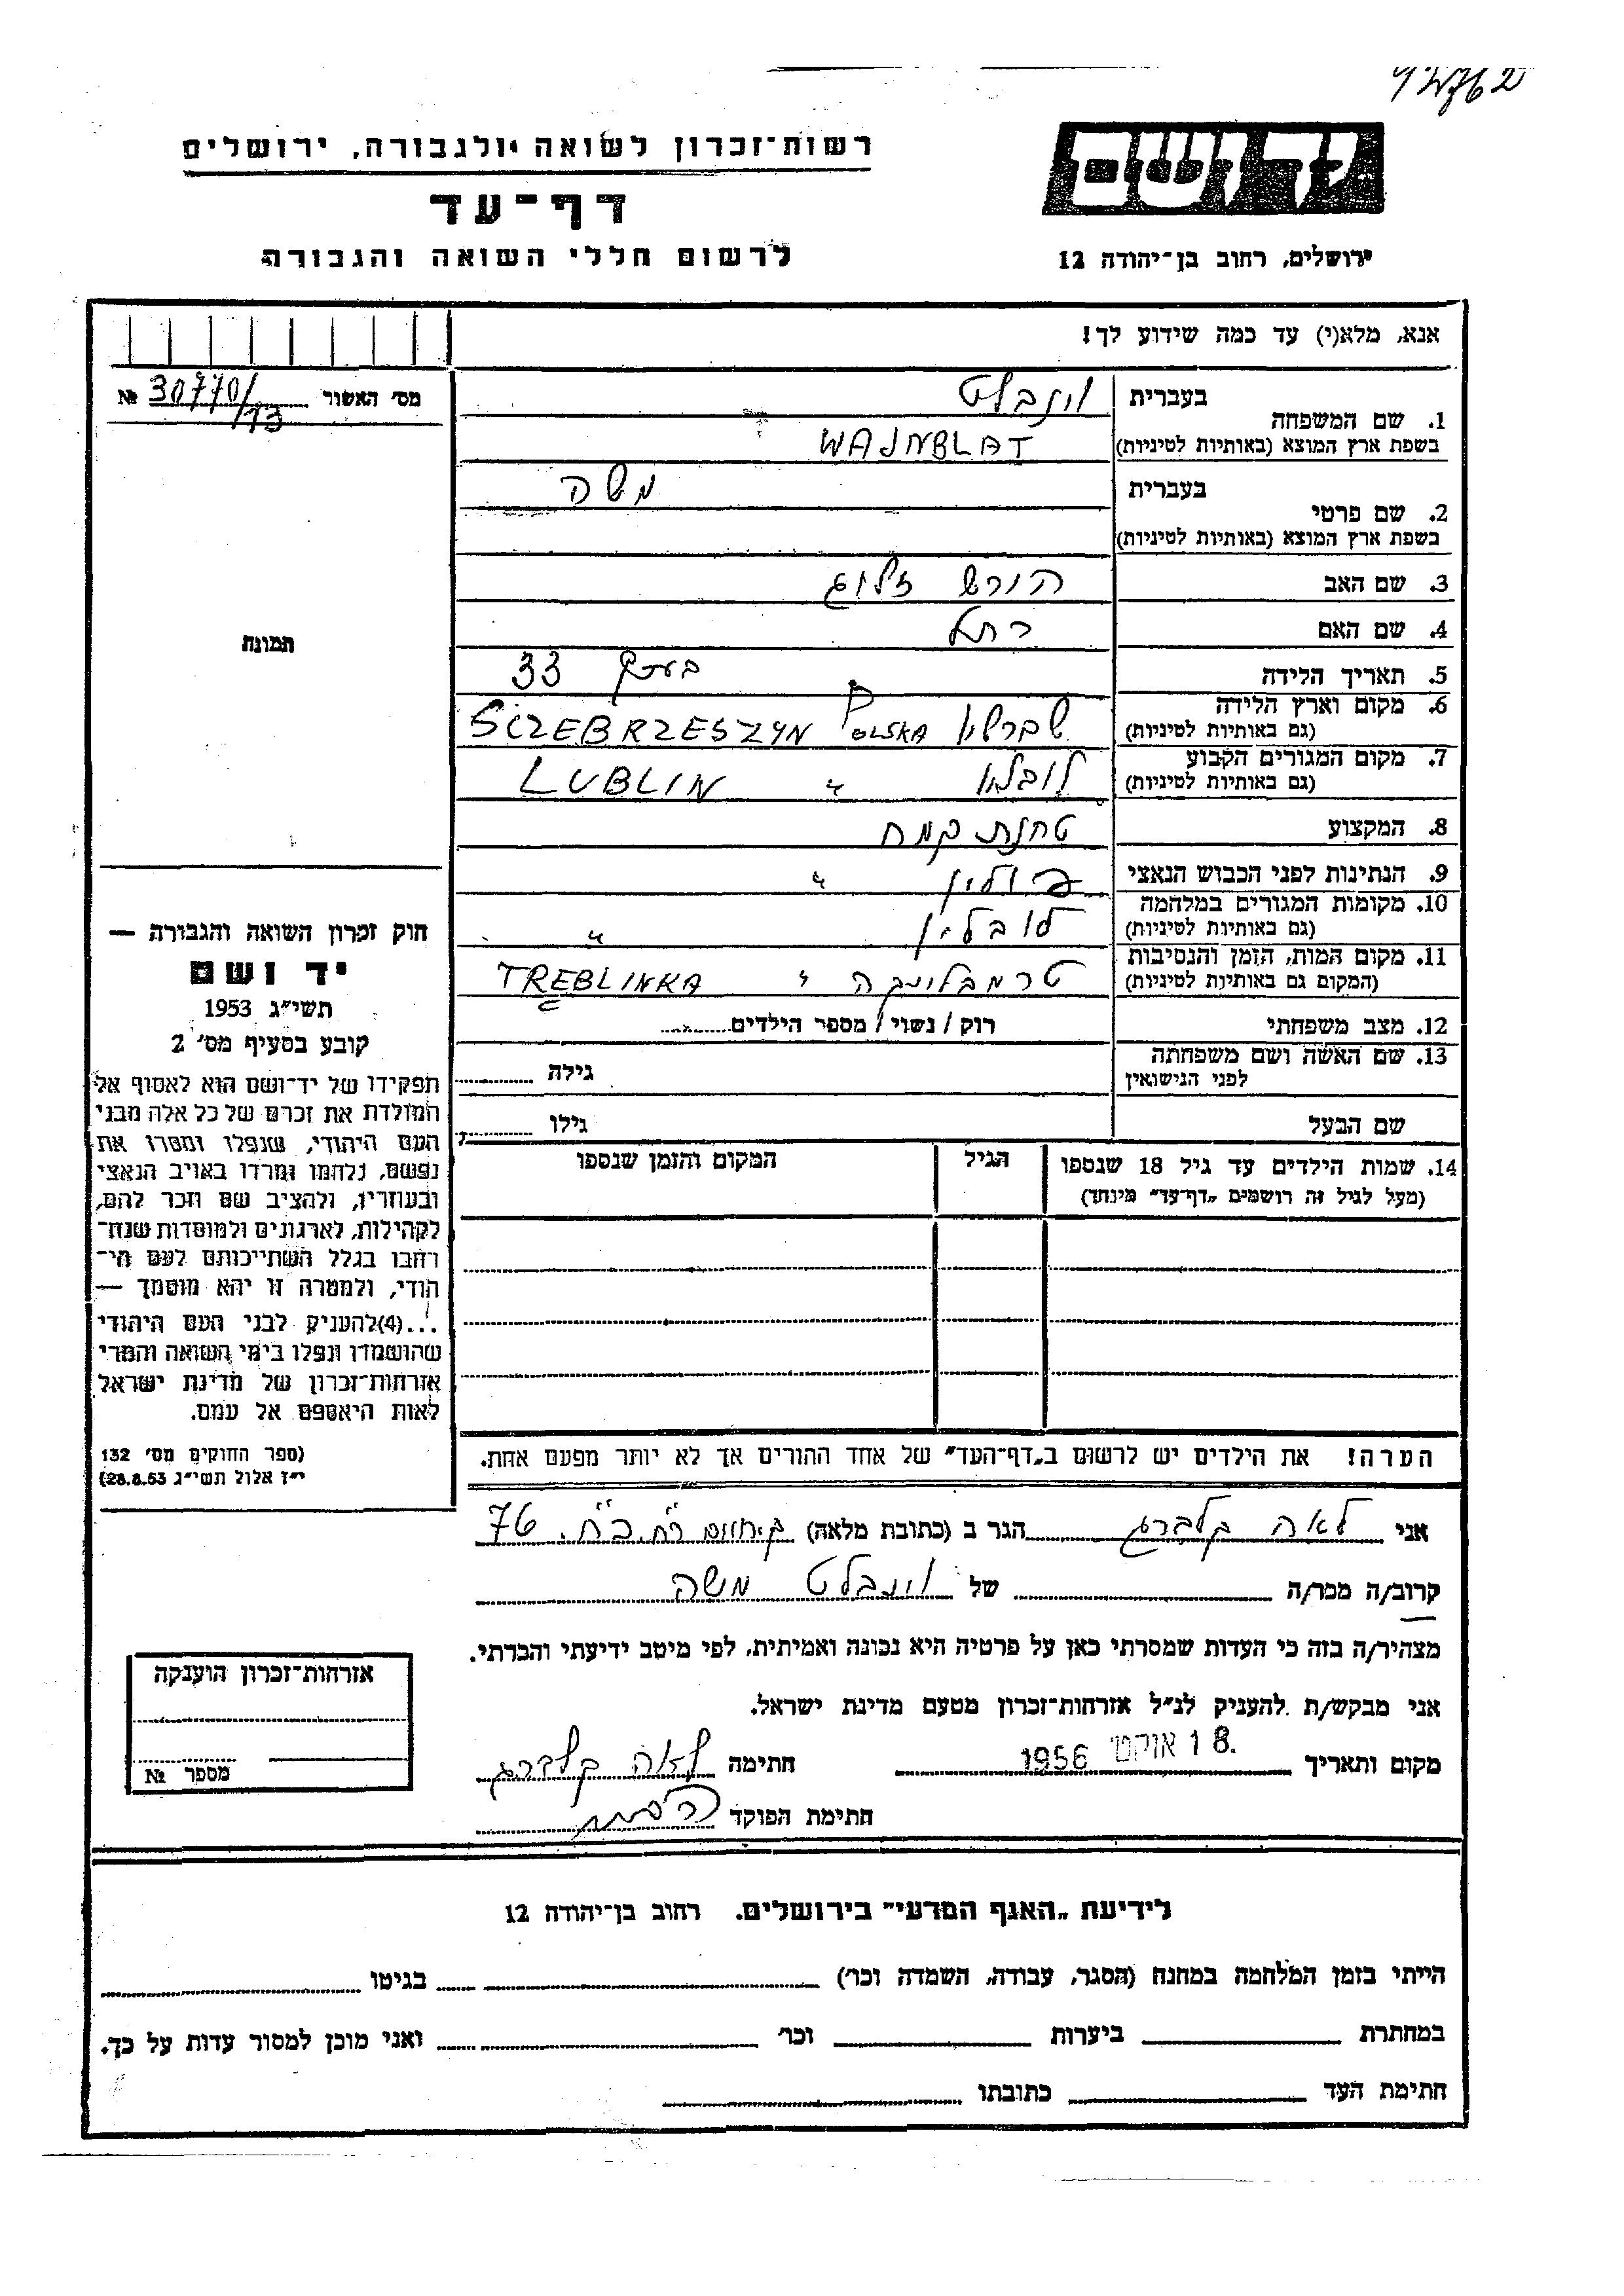 רשות־זכרון לשואה ולגבורה, ירושלים
דף־עד
לרשום חללי השואה והגבורה
ידושם
ירושלים, רחוב בן־יהודה 12
אנא, מלא(י) עד כמה שידוע לך!
מס' האשור № 30770/13
1. שם המשפחה
בעברית וינבלט
בשפת ארץ המוצא (באותיות לטיניות) WAJNBLAT
2. שם פרטי
בעברית משה
בשפת ארץ המוצא (באותיות לטיניות)
3. שם האב הירש זליג
4. שם האם רחל
5. תאריך הלידה בערך 33
6. מקום וארץ הלידה
(גם באותיות לטיניות) שברשין POLSKA SCZEBRZESZYN
7. מקום המגורים הקבוע
(גם באותיות לטיניות) לובלין " LUBLIN
8. המקצוע טחנת קמח
9. הנתינות לפני הכבוש הנאצי פולין "
10. מקומות המגורים במלחמה
(גם באותיות לטיניות) לובלין "
11. מקום המות, הזמן והנסיבות
(המקום גם באותיות לטיניות) טרמבלינקה " TREBLINKA
12. מצב משפחתי רוק / נשוי / מספר הילדים
13. שם האשה ושם משפחתה
לפני הנישואין
גילה
שם הבעל גילו
14. שמות הילדים עד גיל 18 שנספו
(מעל לגיל זה רושמים "דף־עד" מיוחד)
הגיל
המקום והזמן שנספו
הערה! את הילדים יש לרשום ב"דף־העד" של אחד ההורים אך לא יותר מפעם אחת.
תמונה
חוק זכרון השואה והגבורה —
יד ושם
תשי"ג 1953
קובע בסעיף מס' 2
תפקידו של יד־ושם הוא לאסוף אל
המולדת את זכרם של כל אלה מבני
העם היהודי, שנפלו ומסרו את
נפשם, נלחמו ומרדו באויב הנאצי
ובעוזריו, ולהציב שם וזכר להם,
לקהילות, לארגונים ולמוסדות שנח־
רבו בגלל השתייכותם לעם הי־
הודי, ולמטרה זו יהא מוסמך —
...(4)להעניק לבני העם היהודי
שהושמדו ונפלו בימי השואה והמרי
אזרחות־זכרון של מדינת ישראל
לאות היאספם אל עמם.
(ספר החוקים מס' 132
י"ז אלול תשי"ג 28.8.53)
אני לאה קלברג הגר ב (כתובת מלאה) ק. חיים 76
קרוב/ה מכר/ה של וינבלט משה
מצהיר/ה בזה כי העדות שמסרתי כאן על פרטיה היא נכונה ואמיתית, לפי מיטב ידיעתי והכרתי.
אני מבקש/ת להעניק לנ"ל אזרחות־זכרון מטעם מדינת ישראל.
מקום ותאריך 18 אוקט' 1956 חתימה לאה קלברג
חתימת הפוקד
אזרחות־זכרון הוענקה
מספר №
לידיעת "האגף המדעי" בירושלים. רחוב בן־יהודה 12
הייתי בזמן המלחמה במחנה (הסגר, עבודה, השמדה וכו') בגיטו
במחתרת ביערות וכו' ואני מוכן למסור עדות על כך.
חתימת העד כתובתו